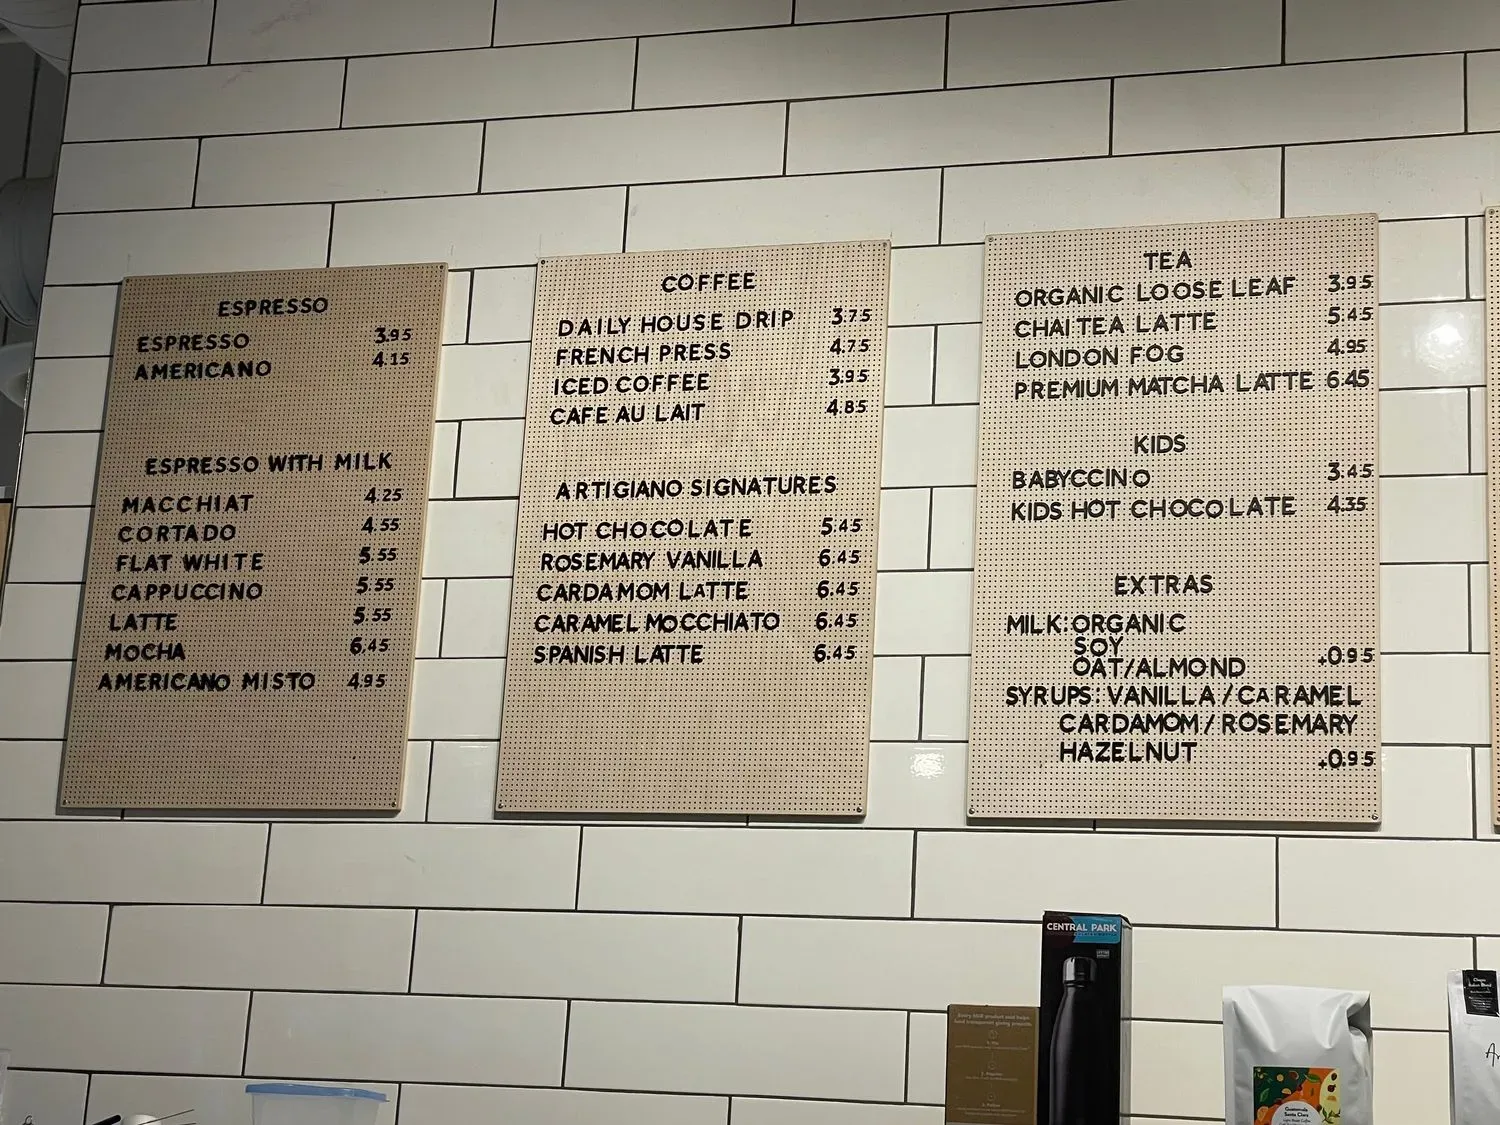 ESPRESSO
ESPRESSO 3.95
AMERICANO 4.15
ESPRESSO WITH MILK
MACCHIAT 4.25
CORTADO 4.55
FLAT WHITE 5.55
CAPPUCCINO 5.55
LATTE 5.55
MOCHA 6.45
AMERICANO MISTO 4.95
COFFEE
DAILY HOUSE DRIP 3.75
FRENCH PRESS 4.75
ICED COFFEE 3.95
CAFE AU LAIT 4.85
ARTIGIANO SIGNATURES
HOT CHOCOLATE 5.45
ROSEMARY VANILLA 6.45
CARDAMOM LATTE 6.45
CARAMEL MOCCHIATO 6.45
SPANISH LATTE 6.45
TEA
ORGANIC LOOSE LEAF 3.95
CHAI TEA LATTE 5.45
LONDON FOG 4.95
PREMIUM MATCHA LATTE 6.45
KIDS
BABYCCINO 3.45
KIDS HOT CHOCOLATE 4.35
EXTRAS
MILK: ORGANIC
SOY
OAT/ALMOND +0.95
SYRUPS: VANILLA / CARAMEL
CARDAMOM / ROSEMARY
HAZELNUT +0.95
CENTRAL PARK
Guatemala
Santa Clara